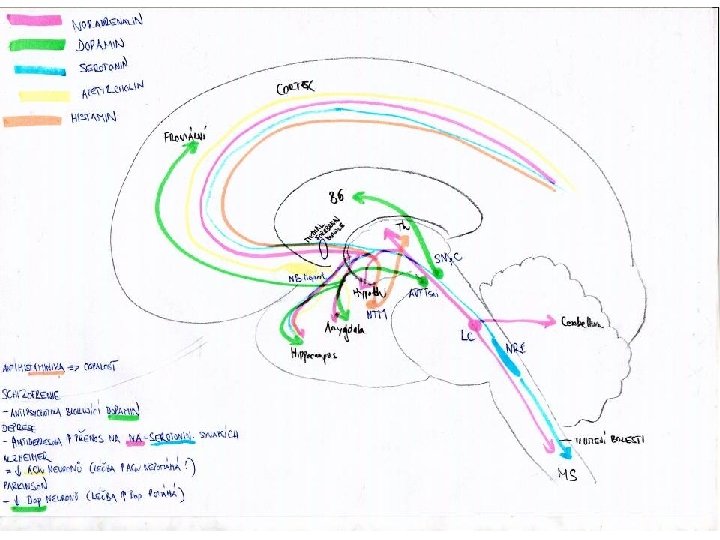 NORADRENALIN
DOPAMIN
SEROTONIN
ACETYLCHOLIN
HISTAMIN
CORTEX
FRONTÁLNÍ
BG
Th
SNpC
NB
Hypoth
NTM
Amygdala
Hippocampus
LC
Cerebellum
TLUMENÍ BOLESTI
MS
ANTIHISTAMINIKA => OSPALOST
SCHIZOFRENIE
- ANTIPSYCHOTIKA BLOKUJÍCÍ DOPAMIN
DEPRESE
- ANTIDEPRESIVA ↑ PŘENOS NA NA-SEROTONIN. SYNAPSÍCH
ALZHEIMER
= ↓ ACH NEURONŮ (LÉČBA ↑ ACH NEPOMÁHÁ!)
PARKINSON
- ↓ DOP NEURONŮ (LÉČBA ↑ DOP POMÁHÁ)